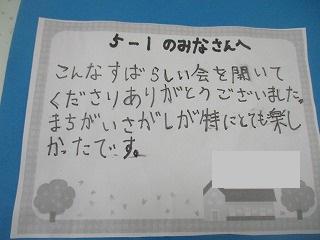 5-1のみなさんへ
こんなすばらしい会を開いて
くださりありがとうございました。
まちがいさがしが特にとても楽し
かったです。